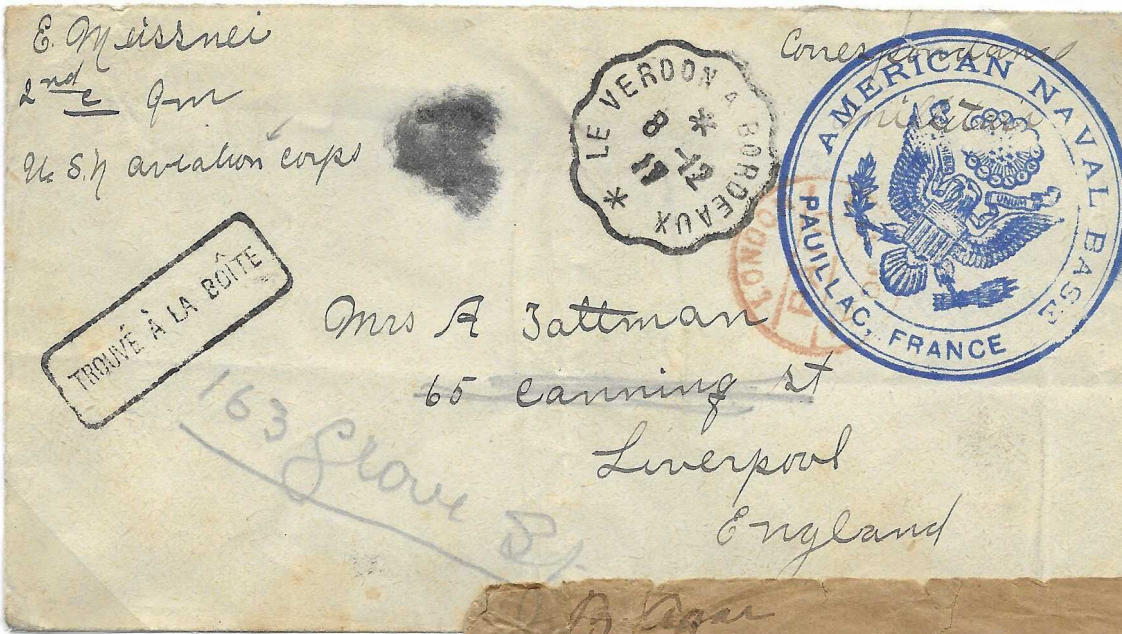 E. Meissner
2nd c qm
U.S.N aviation corps
Correspondance
militaire
LE VERDON A BORDEAUX *
8 *
-12
17
AMERICAN NAVAL BASE
PAUILLAC, FRANCE
LONDON
TROUVÉ À LA BOÎTE
Mrs A Tattman
65 Canning St
Liverpool
England
163 Grove St